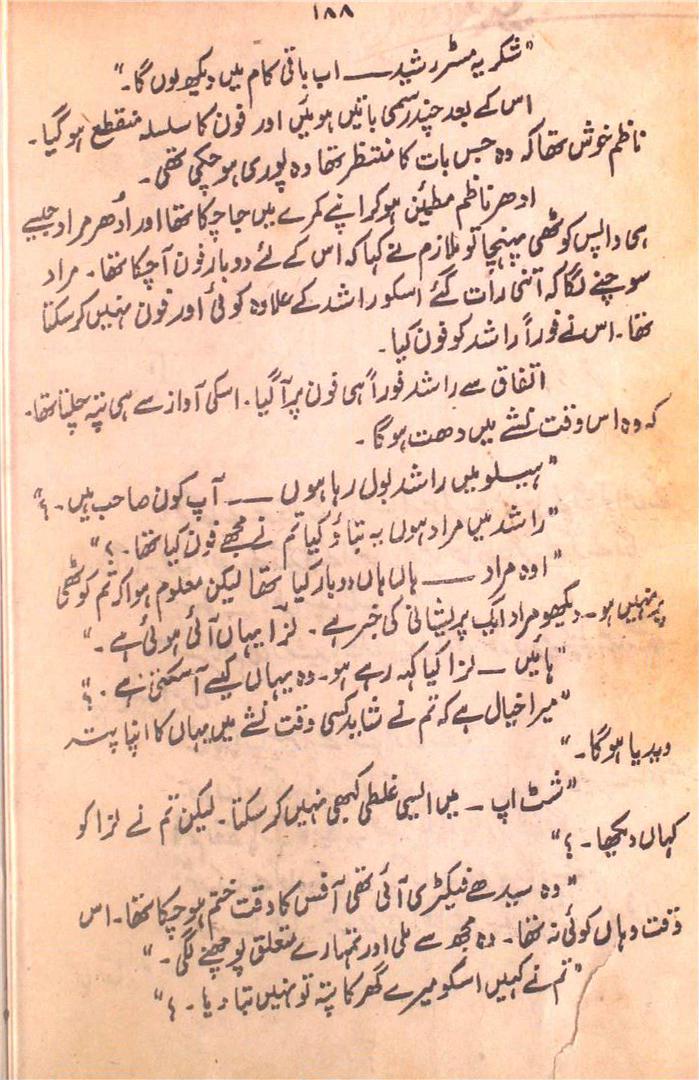 ۱۸۸
"شکریہ مسٹر رشید ــــ اب باقی کام میں دیکھ لوں گا۔"
اس کے بعد چند رسمی باتیں ہوئیں اور فون کا سلسلہ منقطع ہو گیا۔
ناظم خوش تھا کہ وہ جس بات کا منتظر تھا وہ پوری ہو چکی تھی۔
ادھر ناظم مطمئن ہو کر اپنے کمرے میں جا چکا تھا اور اُدھر مراد جیسے
ہی واپس کوٹھی پہنچا تو ملازم نے کہا کہ اس کے لئے دو بار فون آ چکا تھا۔ مراد
سوچنے لگا کہ اتنی رات گئے اسکو راشد کے علاوہ کوئی اور فون نہیں کر سکتا
تھا۔ اس نے فوراً راشد کو فون کیا۔
اتفاق سے راشد فوراً ہی فون پر آ گیا۔ اسکی آواز سے ہی پتہ چلتا تھا۔
کہ وہ اس وقت نشے میں دھت ہو گا۔
"ہیلو میں راشد بول رہا ہوں ــــ آپ کون صاحب ہیں۔؟"
"راشد میں مراد ہوں یہ بتاؤ کیا تم نے مجھے فون کیا تھا۔؟"
"اوہ مراد ــــ ہاں ہاں دو بار کیا تھا لیکن معلوم ہوا کہ تم کوٹھی
پر نہیں ہو۔ دیکھو مراد ایک پریشانی کی خبر ہے۔ لزا یہاں آئی ہوئی ہے۔"
"ہائیں ــ لزا کیا کہہ رہے ہو۔ وہ یہاں کیسے آ سکتی ہے۔؟"
"میرا خیال ہے کہ تم نے شاید کسی وقت نشے میں یہاں کا اپنا پتہ
دیدیا ہو گا۔"
"شٹ اپ ــ میں ایسی غلطی کبھی نہیں کر سکتا۔ لیکن تم نے لزا کو
کہاں دیکھا۔؟"
"وہ سیدھے فیکٹری آئی تھی آفس کا وقت ختم ہو چکا تھا۔ اس
وقت وہاں کوئی نہ تھا۔ وہ مجھ سے ملی اور تمہارے متعلق پوچھنے لگی۔"
"تم نے کہیں اسکو میرے گھر کا پتہ تو نہیں بتا دیا۔؟"